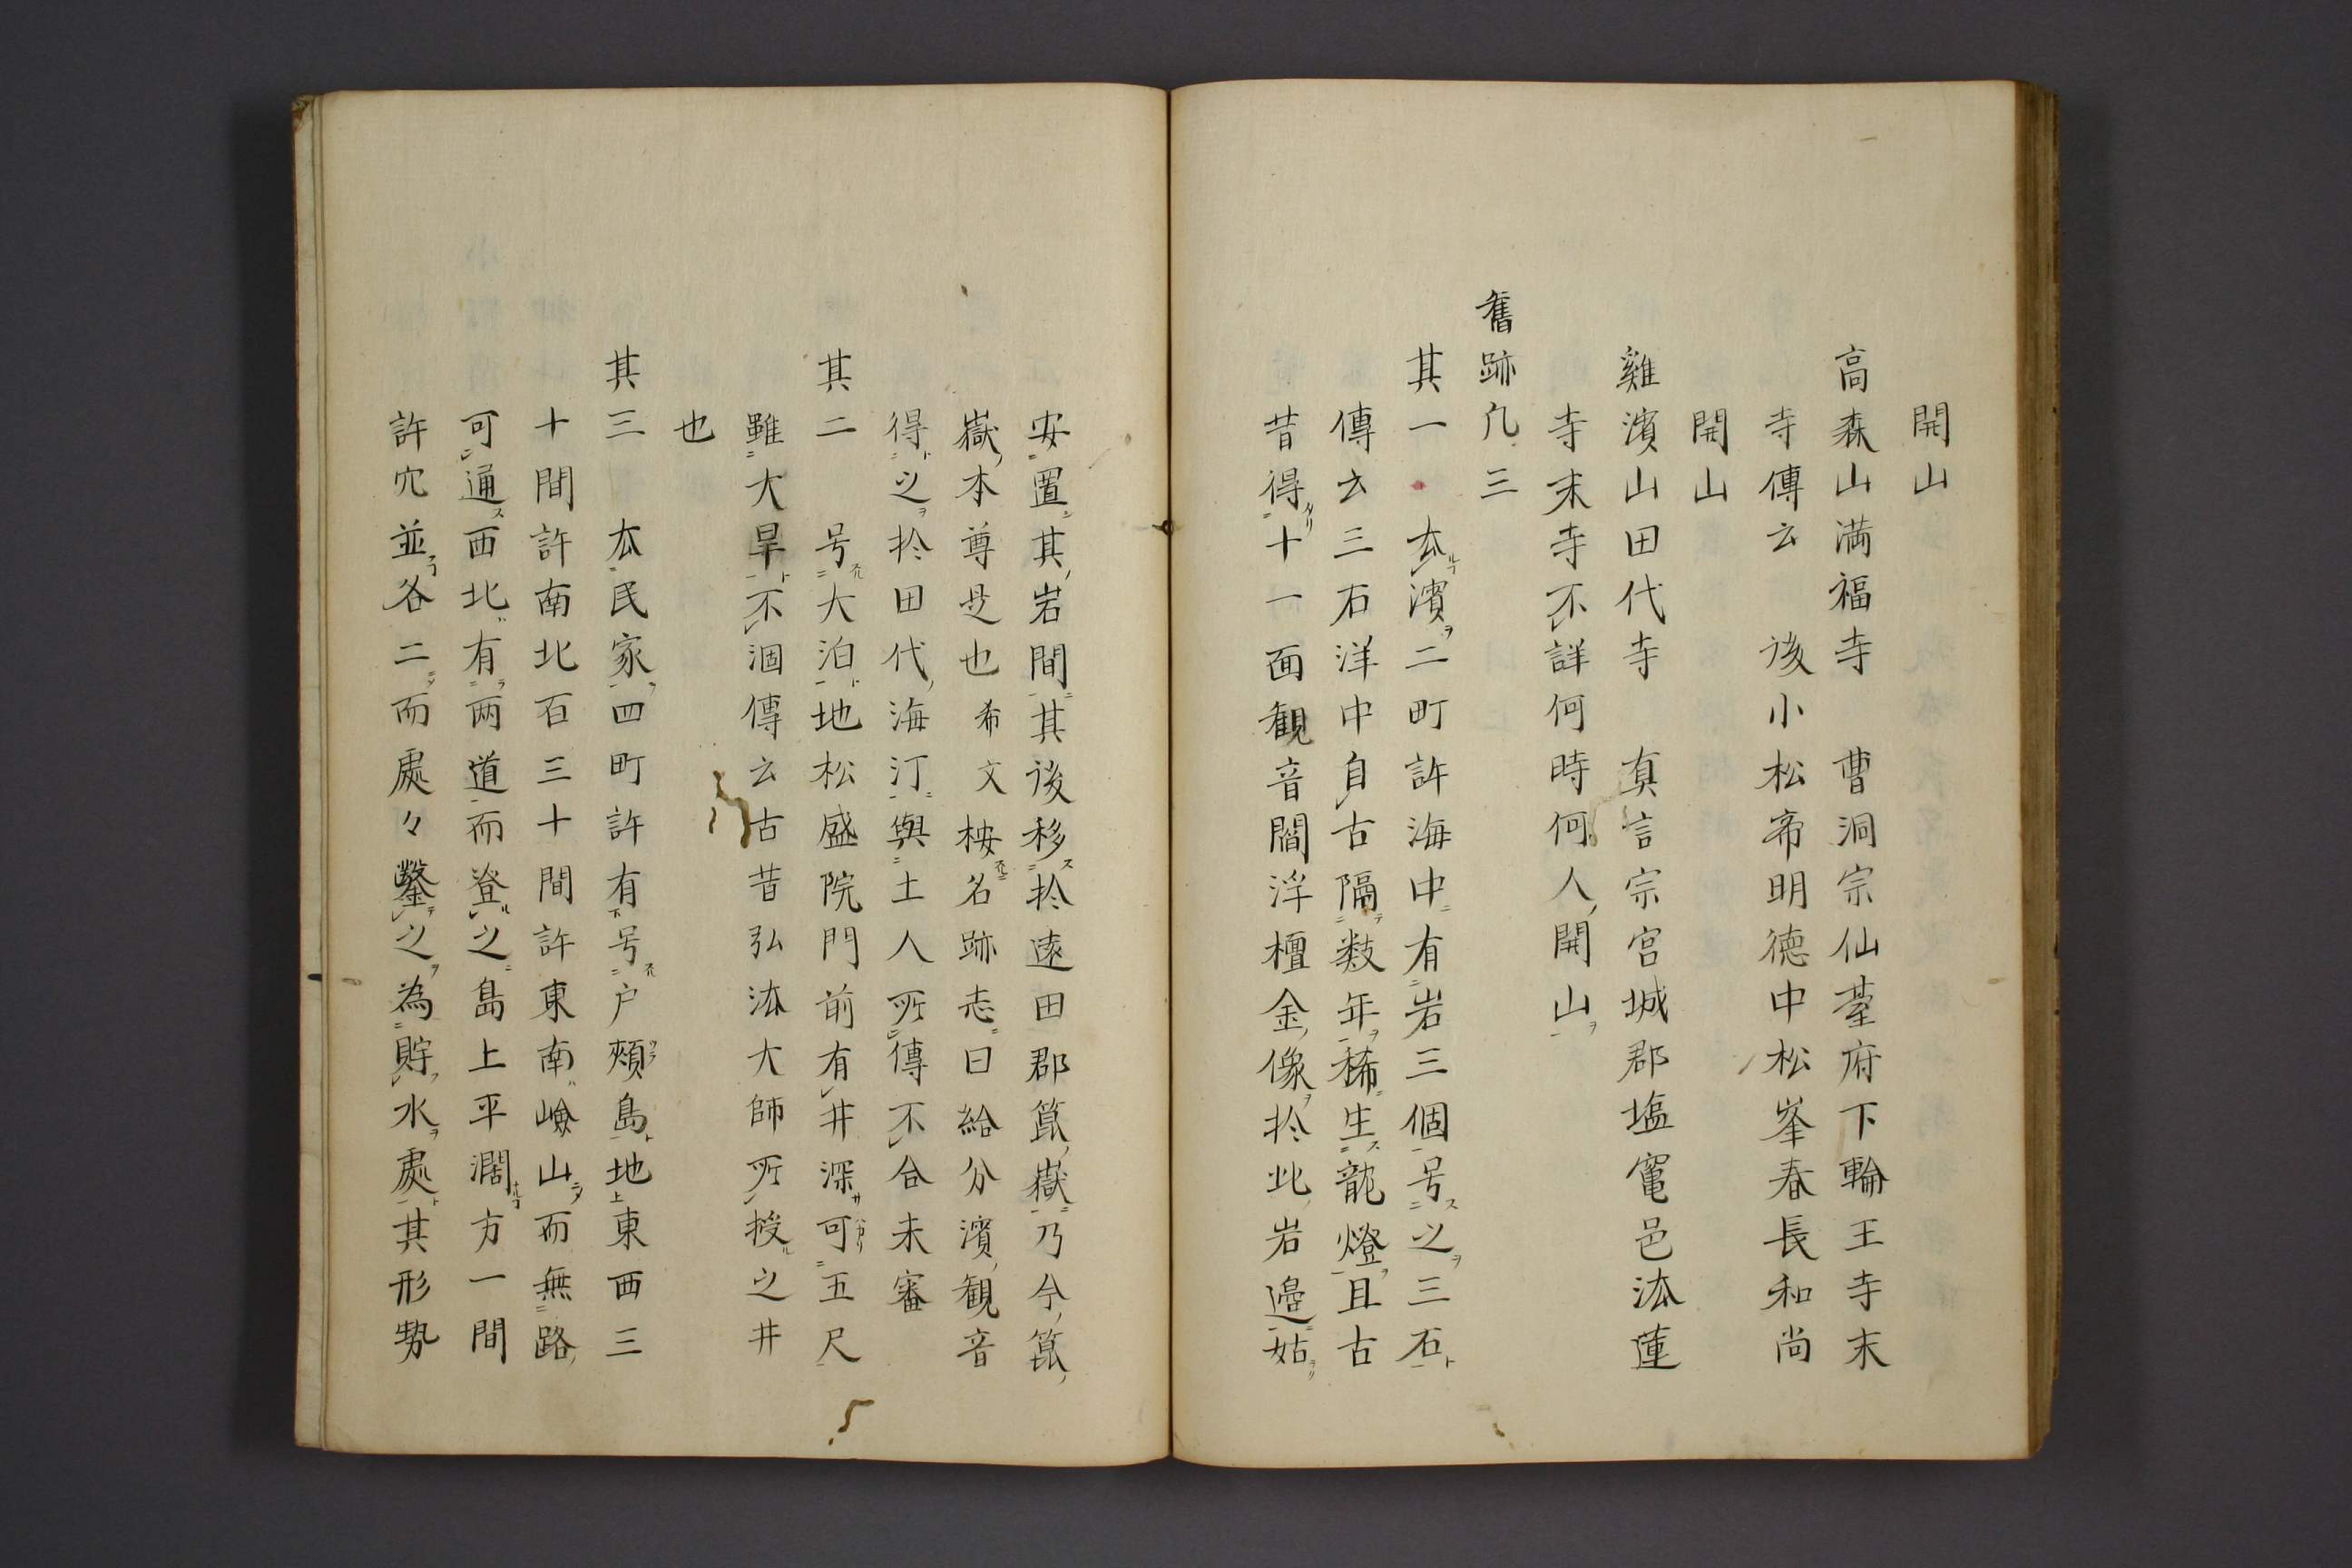 開山
高森山満福寺　曹洞宗仙䑓府下輪王寺末
寺傳云　後小松帝明徳中松峯春長和尚
開山
雞濱山田代寺　真言宗宮城郡塩竃邑法蓮
寺末寺不詳何時何人開山
舊跡凢三
其一　去濱二町許海中有岩三個号之三石
傳云三石洋中自古隔数年稀生龍燈且古
昔得十一面観音閻浮檀金像扵此岩邉姑
安置其岩間其後移扵遠田郡箟嶽乃今箟
嶽本尊是也希文桉名跡志曰給分濱観音
得之扵田代海汀與土人所傳不合未審
其二　号大泊地松盛院門前有井深可五尺
雖大旱不涸傳云古昔弘法大師所授之井
也
其三　去民家四町許有号戸頰島地東西三
十間許南北百三十間許東南嶮山而無路
可通西北有两道而登之島上平濶方一間
許穴並各二而處々鑿之為貯水處其形勢